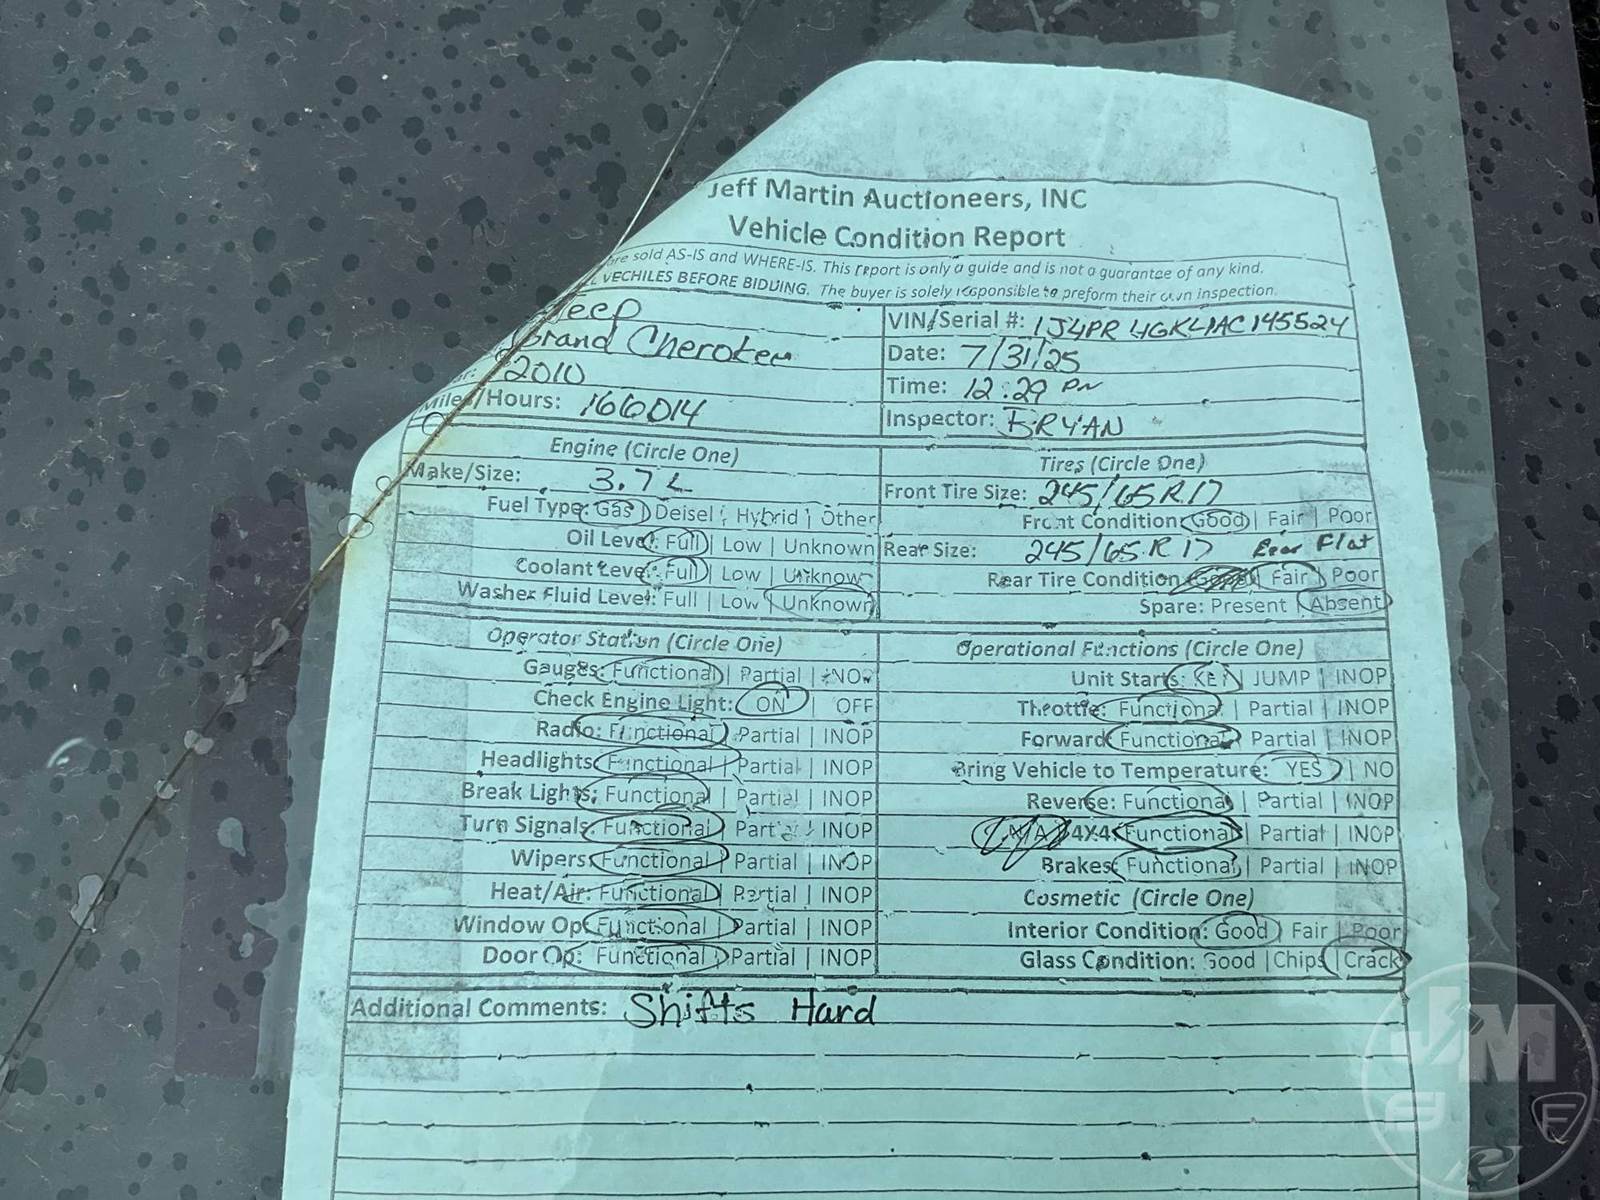 Jeff Martin Auctioneers, INC
Vehicle Condition Report
are sold AS-IS and WHERE-IS. This report is only a guide and is not a guarantee of any kind.
VECHILES BEFORE BIDDING. The buyer is solely responsible to preform their own inspection.
Jeep
VIN/Serial #: 1J4PR4GK4AC145524
Grand Cherokee
Date: 7/31/25
2010
Time: 12:29 PM
Miles/Hours: 166014
Inspector: BRYAN
Engine (Circle One)
Tires (Circle One)
Make/Size: 3.7 L
Front Tire Size: 245/65R17
Fuel Type: Gas | Deisel | Hybrid | Other
Front Condition: Good | Fair | Poor
Oil Level: Full | Low | Unknown
Rear Size: 245/65R17 Rear Flat
Coolant Level: Full | Low | Unknown
Rear Tire Condition: Good | Fair | Poor
Washer Fluid Level: Full | Low | Unknown
Spare: Present | Absent
Operator Station (Circle One)
Operational Functions (Circle One)
Gauges: Functional | Partial | INOP
Unit Starts: KEY | JUMP | INOP
Check Engine Light: ON | OFF
Throttle: Functional | Partial | INOP
Radio: Functional | Partial | INOP
Forward: Functional | Partial | INOP
Headlights: Functional | Partial | INOP
Bring Vehicle to Temperature: YES | NO
Break Lights: Functional | Partial | INOP
Reverse: Functional | Partial | INOP
Turn Signals: Functional | Partial | INOP
N/A 4X4: Functional | Partial | INOP
Wipers: Functional | Partial | INOP
Brakes: Functional | Partial | INOP
Heat/Air: Functional | Partial | INOP
Cosmetic (Circle One)
Window Op: Functional | Partial | INOP
Interior Condition: Good | Fair | Poor
Door Op: Functional | Partial | INOP
Glass Condition: Good | Chips | Crack
Additional Comments: Shifts Hard
JM